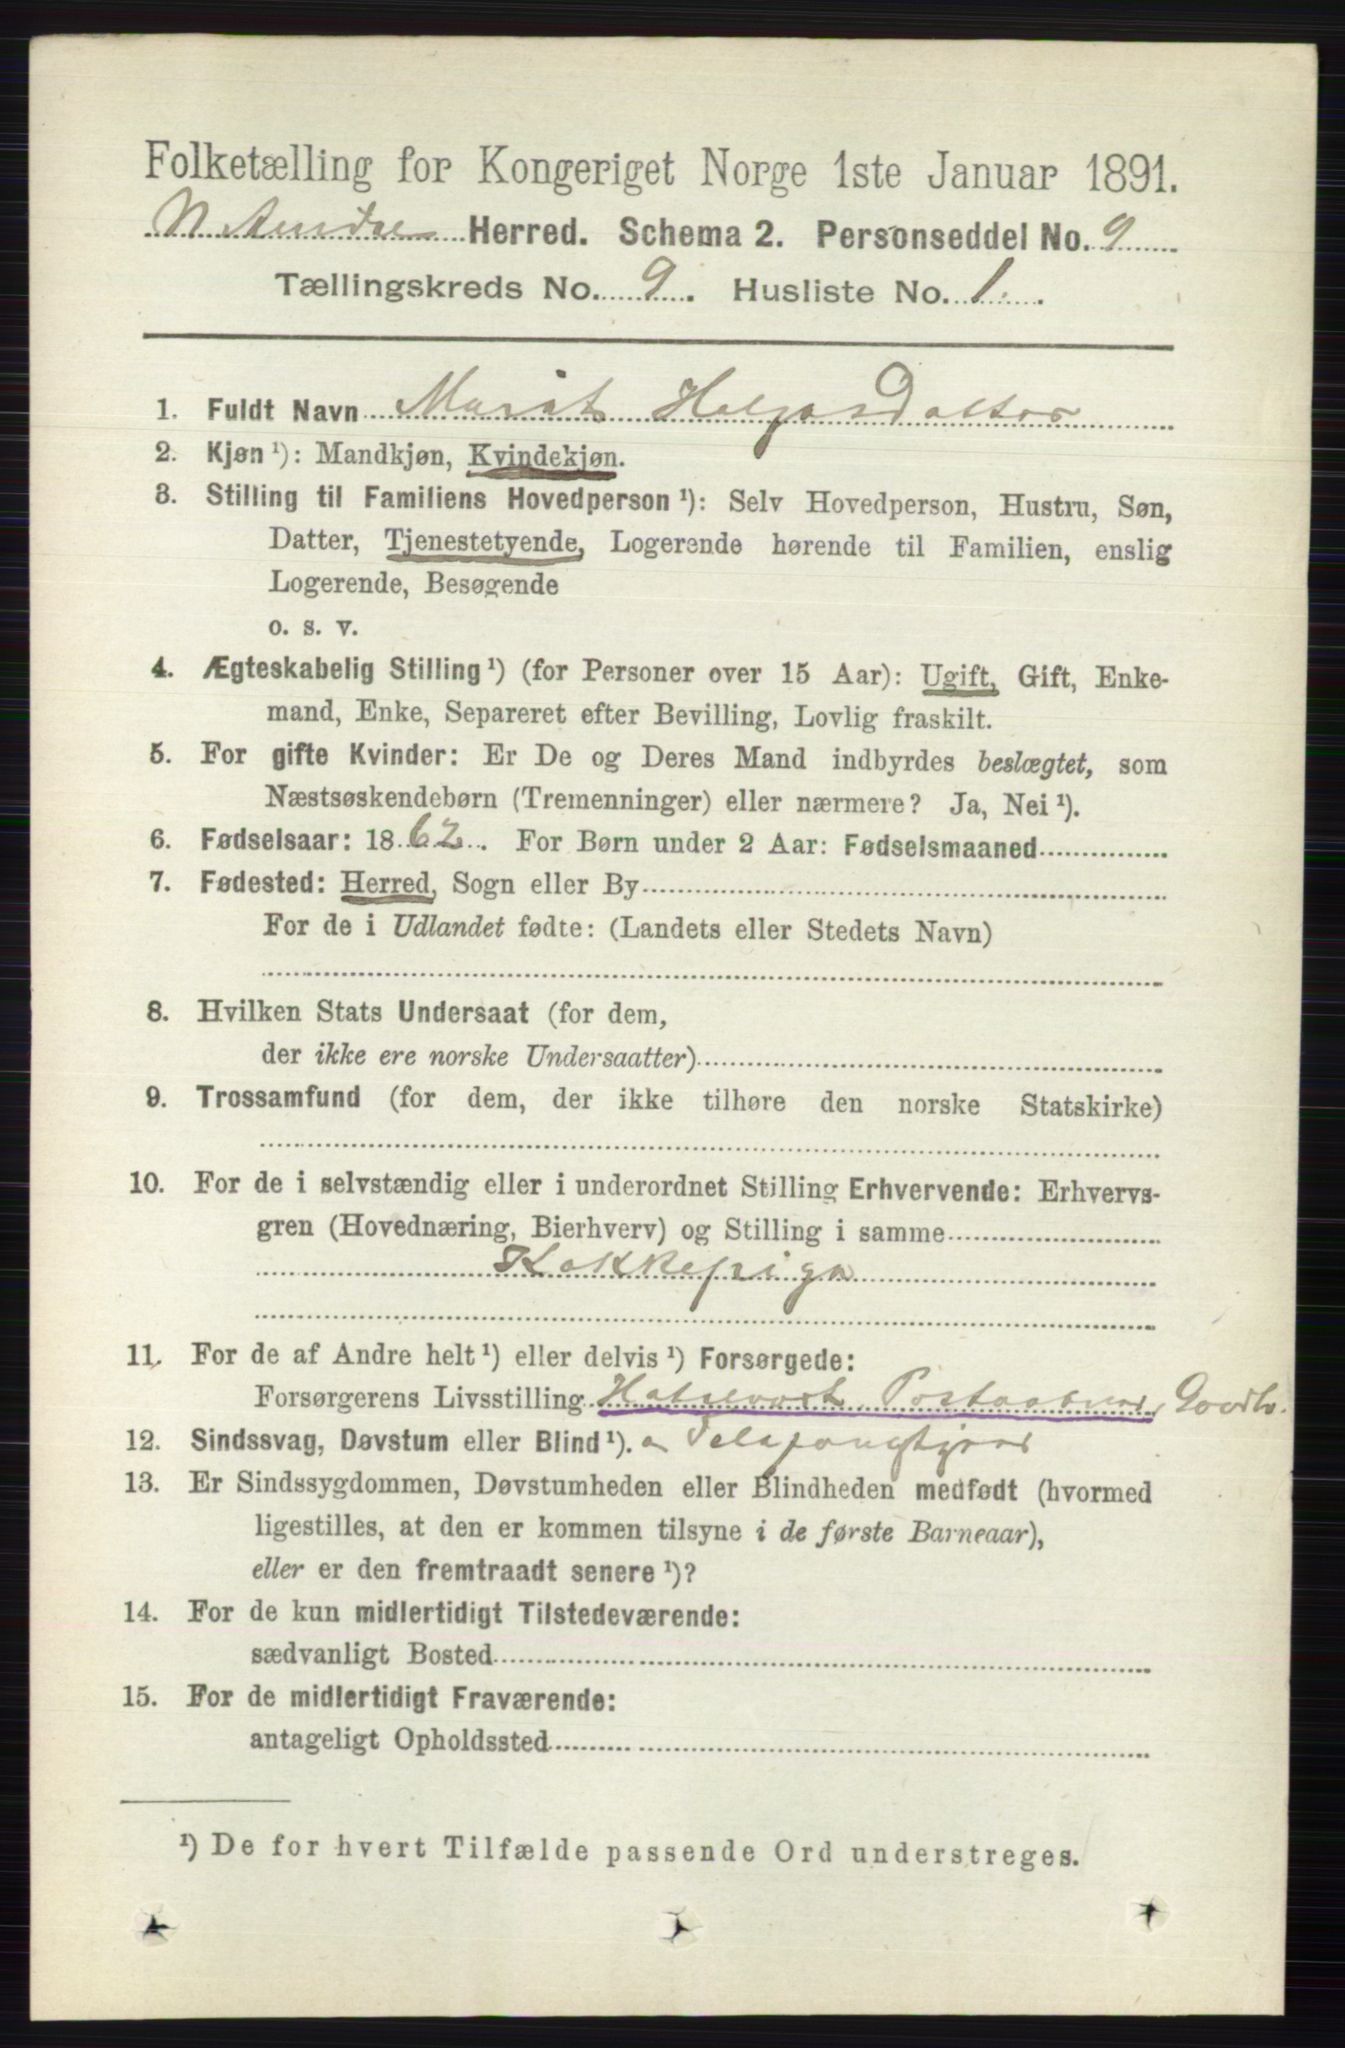 Folketælling for Kongeriget Norge 1ste Januar 1891.
N Aurdal Herred. Schema 2. Personseddel No. 9
Tællingskreds No. 9. Husliste No. 1.
1. Fuldt Navn Marit Helgesdatter
2. Kjøn ¹): Mandkjøn, Kvindekjøn.
3. Stilling til Familiens Hovedperson ¹): Selv Hovedperson, Hustru, Søn,
Datter, Tjenestetyende, Logerende hørende til Familien, enslig
Logerende, Besøgende
o. s. v.
4. Ægteskabelig Stilling ¹) (for Personer over 15 Aar): Ugift, Gift, Enke-
mand, Enke, Separeret efter Bevilling, Lovlig fraskilt.
5. For gifte Kvinder: Er De og Deres Mand indbyrdes beslægtet, som
Næstsøskendebørn (Tremenninger) eller nærmere? Ja, Nei ¹).
6. Fødselsaar: 1862. For Børn under 2 Aar: Fødselsmaaned
7. Fødested: Herred, Sogn eller By
For de i Udlandet fødte: (Landets eller Stedets Navn)
8. Hvilken Stats Undersaat (for dem,
der ikke ere norske Undersaatter)
9. Trossamfund (for dem, der ikke tilhøre den norske Statskirke)
10. For de i selvstændig eller i underordnet Stilling Erhvervende: Erhvervs-
gren (Hovednæring, Bierhverv) og Stilling i samme
Kokkepige
11. For de af Andre helt ¹) eller delvis ¹) Forsørgede:
Forsørgerens Livsstilling Hotelvært, Postaabner, Gaardbr.
12. Sindssvag, Døvstum eller Blind ¹). 
13. Er Sindssygdommen, Døvstumheden eller Blindheden medfødt (hvormed
ligestilles, at den er kommen tilsyne i de første Barneaar),
eller er den fremtraadt senere ¹)?
14. For de kun midlertidigt Tilstedeværende:
sædvanligt Bosted
15. For de midlertidigt Fraværende:
antageligt Opholdssted
¹) De for hvert Tilfælde passende Ord understreges.